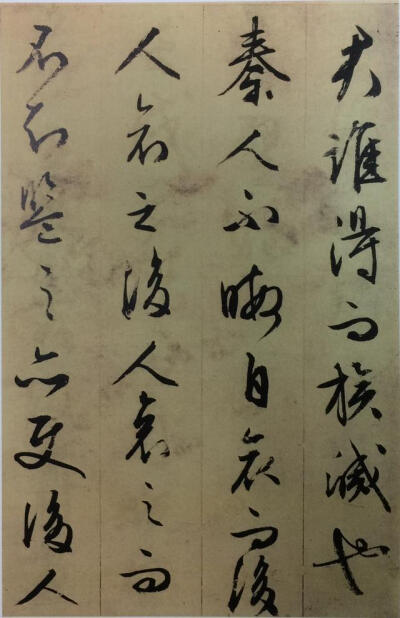 君誰得而族滅也
秦人不暇自哀而後
人哀之後人哀之而
不鑒之亦使後人